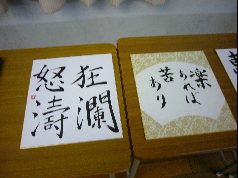 狂瀾
怒濤
楽
あれば
苦
あり